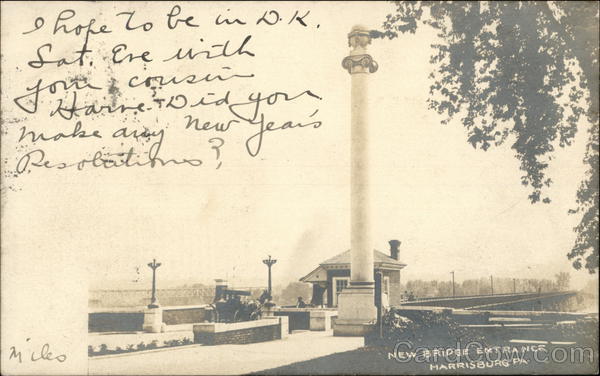 I hope to be in D.K.
Sat. Eve with
your cousin
Harve - Did you
make any New Year's
Resolutions?
Miles
NEW BRIDGE ENTRANCE
HARRISBURG PA.
CardCow.com